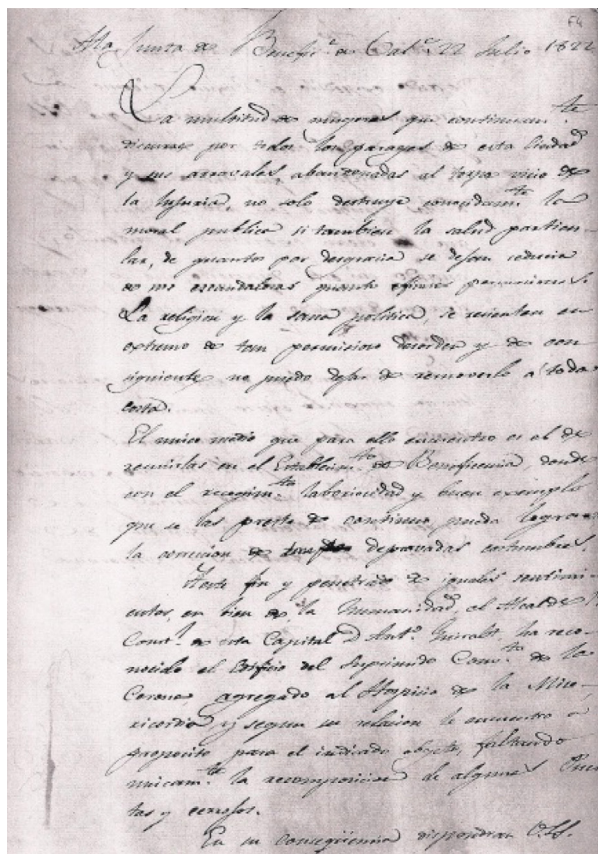 F4
A la Junta de Benefi.ª de Cat.ª 22 Julio 1822
La multitud de mugeres que continuam.te
discurre por todos los parages de esta Ciudad
y sus arravales abandonadas al torpe vicio de
la lujuria, no solo destruye conocidam.te la
moral publica si tambien la salud particu-
lar, de quantos por desgracia se dejan seducir
de sus escandalosas quanto
La religion y la sana politica, se resienten en
extremo de tan pernicioso desorden y de con
siguiente no puedo dejar de removerlo a toda
costa.
El unico medio que para ello encuentro es el de
reunirlas en el Establecim.to de Beneficencia, donde
con el recogim.to laboriosidad y buen exemplo
que se las preste de continuo, pueda lograrse
la correccion de depravadas costumbres.
A este fin y penetrado de iguales sentimi-
entos, en bien de la humanidad, el Alcalde
Const.l de esta Capital D. Ant.º Guiralt, ha reco-
nocido el Edificio del Suprimido Conv.to de la
Corona, agregado al Hospicio de la Mise-
ricordia y segun su relacion le encuentro a
proposito para el indicado objeto, faltando
unicam.te la recomposicion de algunas Puer
tas y cerrojos.
En su conseqüencia dispondran V.SS.